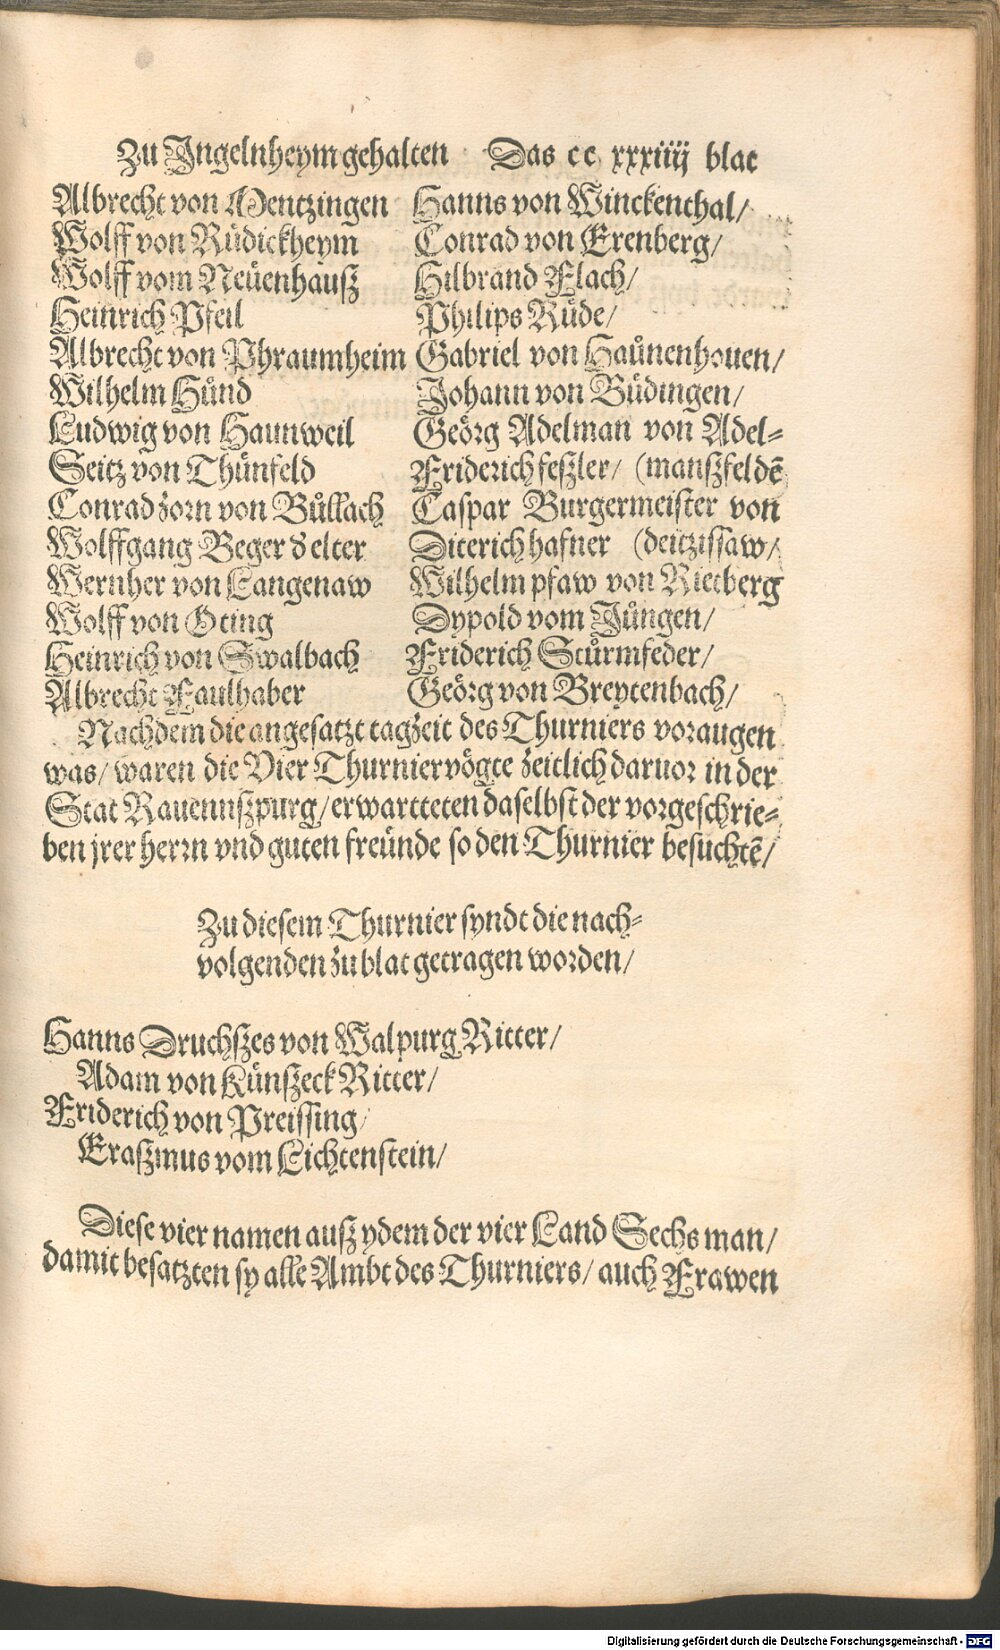 Zu Jngelnheym gehalten Das cc xxxiiij blat
Albrecht von Mentzingen
Wolff von Rüdickheym
Wolff vom Neüenhausz
Heinrich Pfeil
Albrecht von Phraumheim
Wilhelm Hůnd
Ludwig von Haunweil
Seitz von Thünfeld
Conrad zorn von Bůllach
Wolffgang Beger d elter
Wernher von Langenaw
Wolff von Oting
Heinrich von Swalbach
Albrecht Faulhaber
Hanns von Winckenthal/
Conrad von Erenberg/
Hilbrand Flach/
Philips Rüde/
Gabriel von Haůnenhouen/
Johann von Büdingen/
Geörg Adelman von Adel-
Friderich feszler/ (manszfeldē
Caspar Burgermeister von
Diterich hafner (deitzissaw/
Wilhelm pfaw von Rietberg
Dypold vom Jüngen/
Friderich Stürmfeder/
Geörg von Breytenbach/
Nachdem die angesatzt tagzeit des Thurniers voraugen
was/ waren die Vier Thurniervögte zeitlich daruor in der
Stat Rauennszpurg/ erwartteten daselbst der vorgeschrie-
ben jrer herrn vnd guten freünde so den Thurnier besuchtē/
Zu diesem Thurnier syndt die nach-
volgenden zu blat getragen worden/
Hanns Druchszes von Walpurg Ritter/
Adam von Künszeck Ritter/
Friderich von Preissing/
Eraszmus vom Lichtenstein/
Diese vier namen ausz ydem der vier Land Sechs man/
damit besatzten sy alle Ambt des Thurniers/ auch Frawen
Digitalisierung gefördert durch die Deutsche Forschungsgemeinschaft - DFG